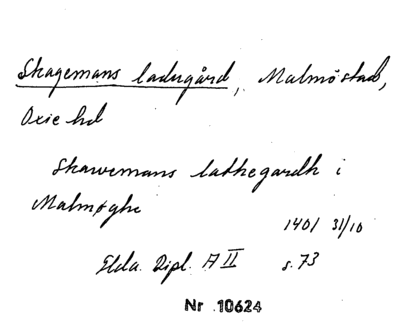 Skagemans ladugård, Malmö stad,
Oxie hd
Skawemans lathegardh i
Malmøghe
1401 31/10
Elda. Dipl. A II s. 73
Nr 10624